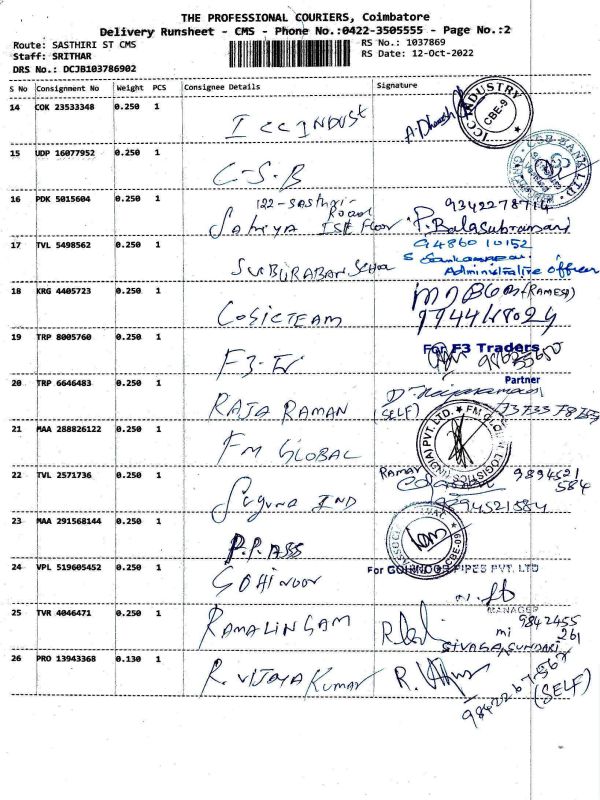 THE PROFESSIONAL COURIERS, Coimbatore
Delivery Runsheet - CMS - Phone No.:0422-3505555 - Page No.:2
Route: SASTHIRI ST CMS
Staff: SRITHAR
RS No.: 1037869
RS Date: 12-Oct-2022
DRS No.: DCJB103786902
S No Consignment No Weight PCS Consignee Details Signature
14 COK 23533348 0.250 1 ICC INDUST
ICC INDUSTRY CBE-9
15 UDP 16077952 0.250 1 C-S-B
CSB BANK LTD.
16 PDK 5015604 0.250 1 122-Sasthri-
Road
Sathya IST Floor
9342278714
P. Balasubramani
17 TVL 5498562 0.250 1 SUBURABAN School
94860 10152
Administrative officer
18 KRG 4405723 0.250 1 COSICTEAM
(RAMESH)
19 TRP 8005760 0.250 1 F3-
For F3 Traders
Partner
20 TRP 6646483 0.250 1 RAJA RAMAN
(SELF)
21 MAA 288826122 0.250 1 FM GLOBAL
FM GLOBAL LOGISTICS (INDIA) PVT. LTD.
22 TVL 2571736 0.250 1 Suguna IND
RAMAR
9894521
584
9894521584
23 MAA 291568144 0.250 1 P.P. ASS
24 VPL 519605452 0.250 1 GOHINOOR
For GOHINOOR PIPES PVT. LTD
MANAGER
25 TVR 4046471 0.250 1 RAMALINGAM
9842455
261
SIVAGASUNDARI
26 PRO 13943368 0.130 1 R. VIJAYA KUMAR
(SELF)